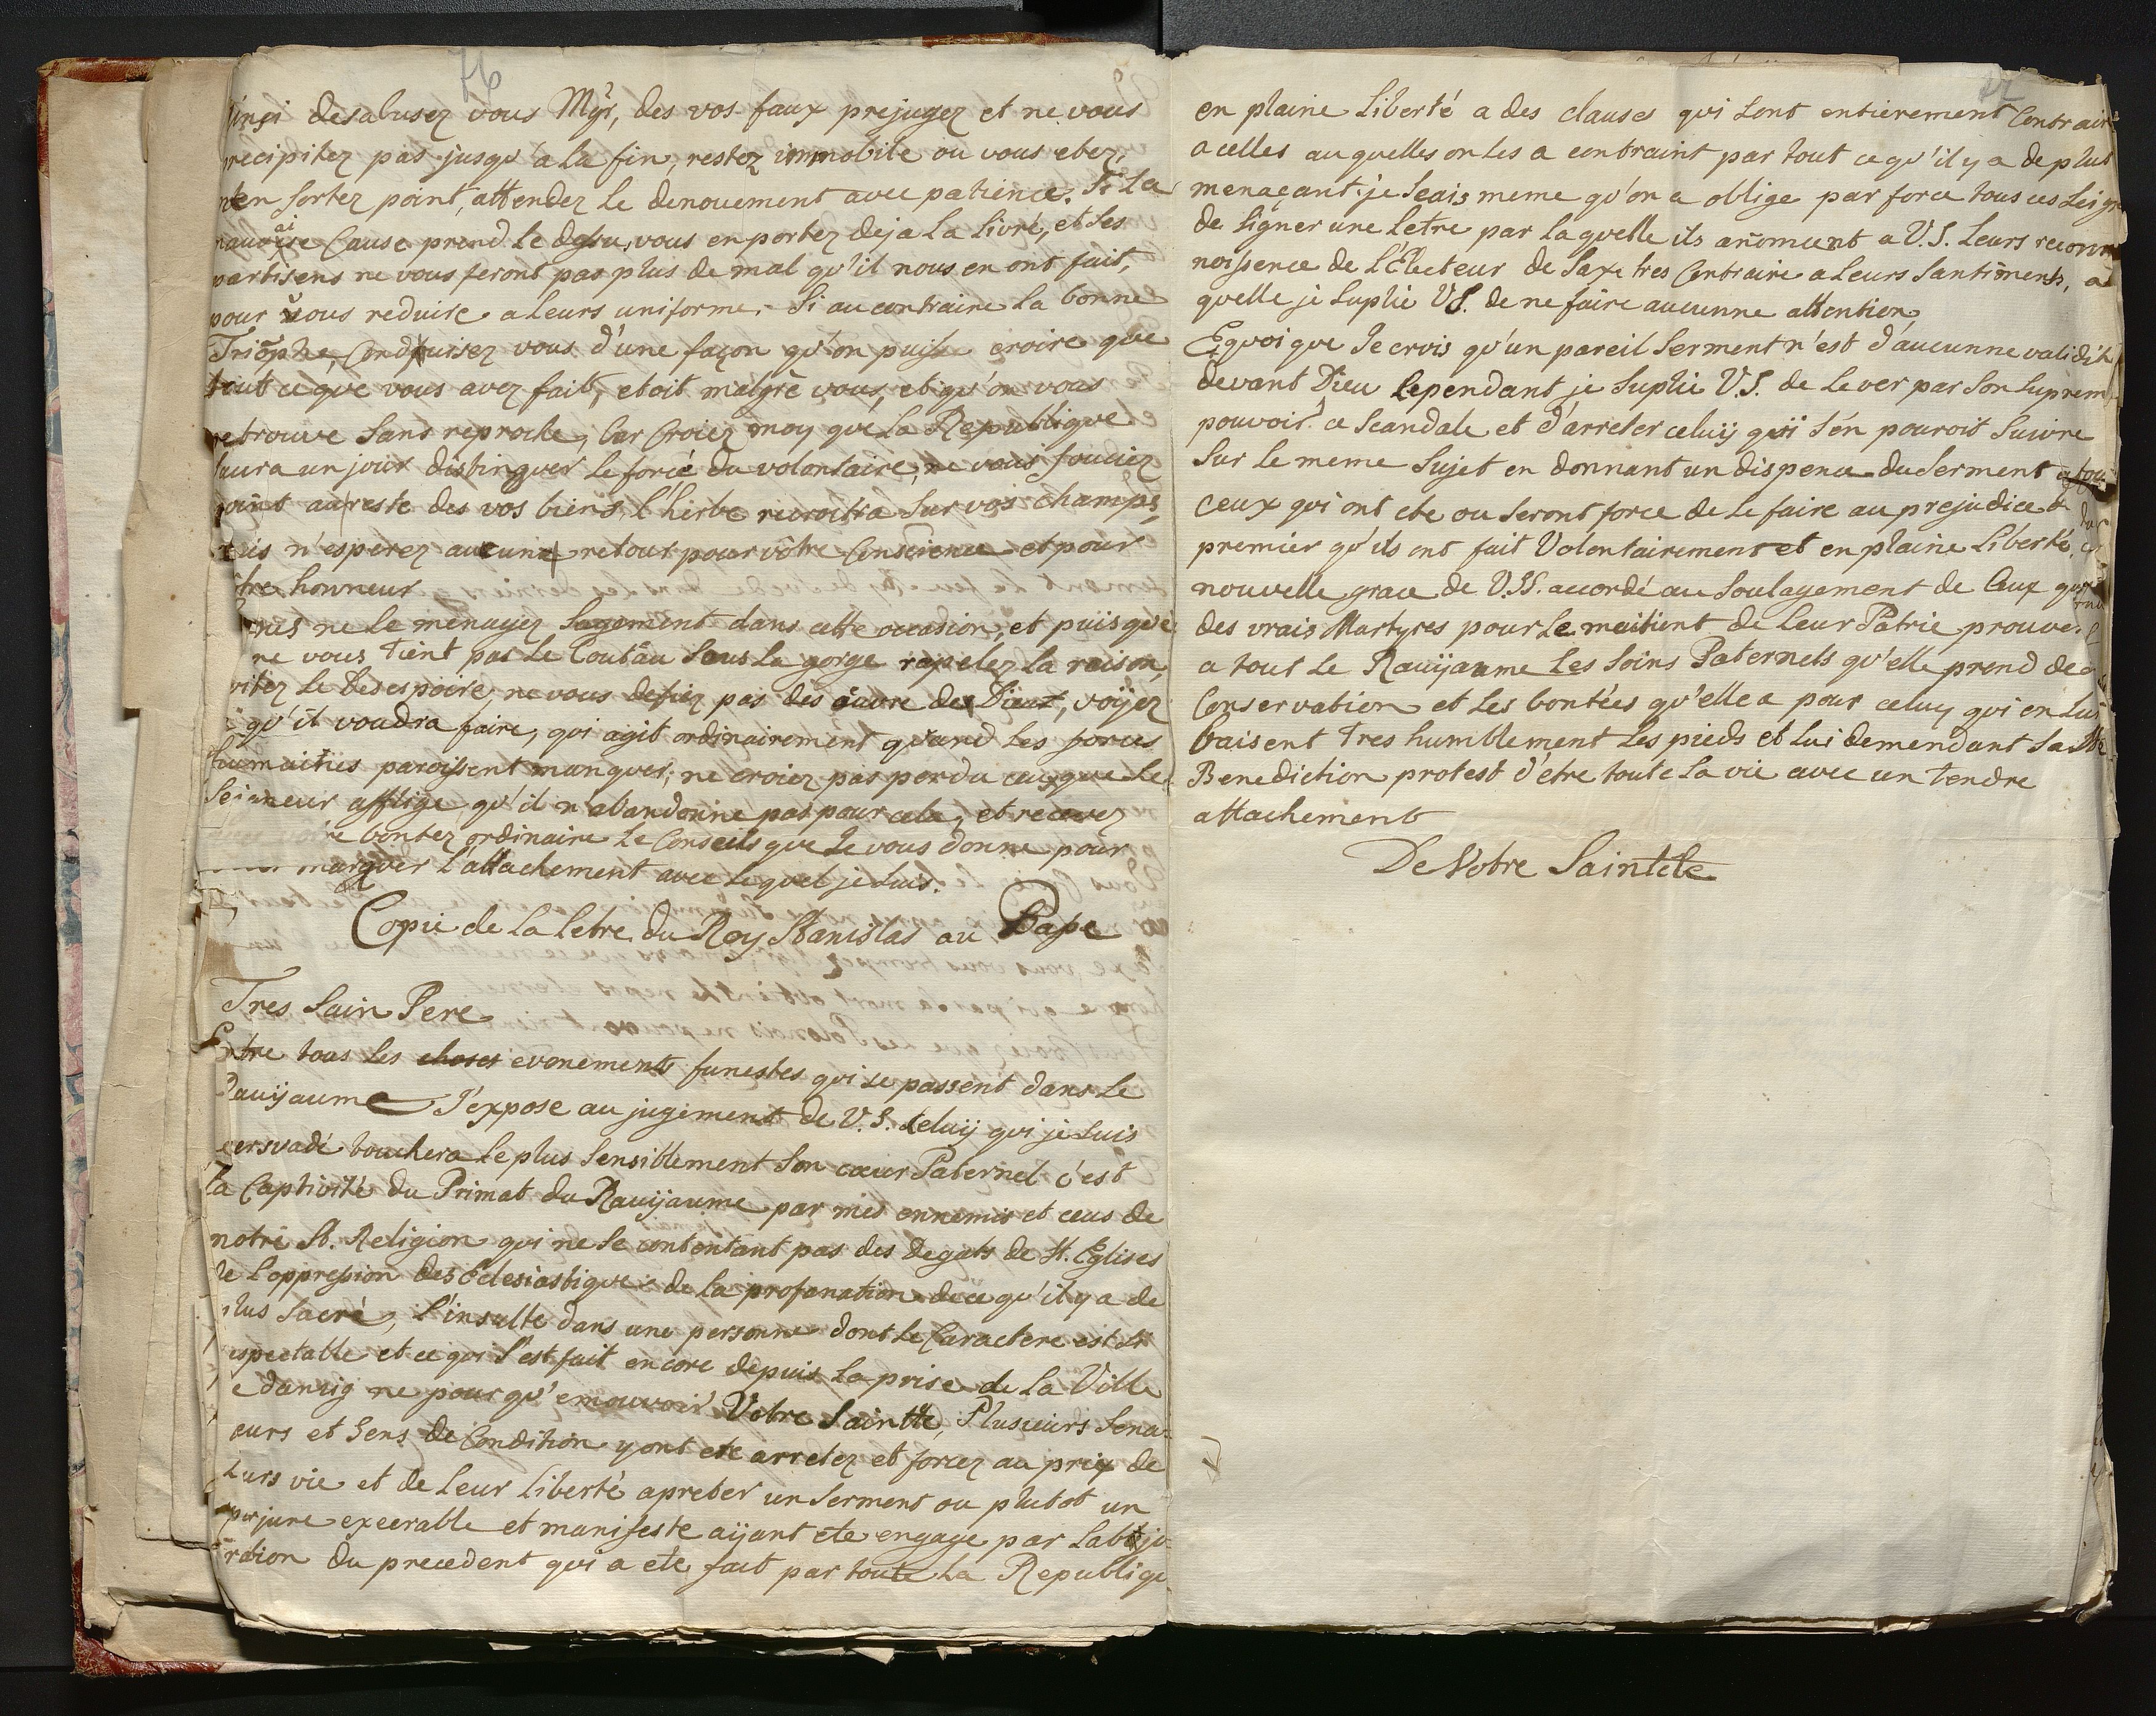 76
ainsi desabusez vous Mgrs, des vos faux prejugez et ne vous
precipitez pas jusqu'a la fin, restez immobile ou vous etez,
n'en sortez point, attendez le denouement avec patience. Si la
mauvaise Cause prend le dessu, vous en portez deja la livré, et ses
partisens ne vous feront pas plus de mal qu'il nous en ont fait,
pour vous reduire a leurs uniforme. Si au contraire la bonne
Triõphe, Conduisez vous d'une façon qu'on puisse croire que
tout ce que vous avez fait, etoit malgrè vous, et qu'on vous
retrouve sans reproche, Car Croiez moy que la Republique
saura un jour distinguer le forcé du volontaire, ne vous souciez
point au reste des vos biens, l'herbe recroitra sur vos champs,
mais n'esperez aucun retour pour vôtre Conscience et pour
vôtre honneur
ne le menagez sagement dans cette occasion, et puis qu'
ne vous tient pas le Coutau sous la gorge rapelez la raison,
evitez le desespoire, ne vous defiez pas des æuvre de Dieu, voijez
ce qu'il voudra faire, qui agit ordinairement quand les forces
humaines paroissent manquer, ne croiez pas perdu ceux que le
Seigneur afflige, qu'il n'abandonne pas pour cela, et recevez
bontez ordinaire le Conseils que je vous donne pour
marquer l'attachement avec le quel je suis.
Copie de la letre du Roy Stanislas au Pape
Tres Sain Pere
Entre tous les choses evenements funestes qui se passent dans le
Rauijaume J'expose au jugement de V. S. Celuij qui je suis
persvadé touchera le plus sensiblement son cœur Paternel c'est
la Captivité du Primat du Rauijaume par mes ennemis et ceus de
notre St. Religion qui ne se contentant pas des degats de St. Eglises
de l'oppression des Eclesiastique de la profanation de ce qu'il y a de
plus sacré, l'insulte dans une personne dont le Caractere est si
respectable et ce qui s'est fait encore depuis la prise de la Ville
de danzig ne pour qu'emouvoir Votre Saintte, Plusieurs Sena-
teurs et Gens de Condition y ont ete arretez et forcez au prix de
leurs vie et de leur liberté apreter un serment ou plutot un
perjure execrable et manifeste aijant ete engage par labju-
ration du precedent qui a eté fait par toute la Republique
en plaine liberté a des clauses qui sont entierement Contraire
a celles au quelles on les a contraint par tout ce qu'il y a de plus
menaçant. je scais meme qu'on a oblige par force tous ces Seigrs
de signer une letre par laquelle ils anõncent a V. S. leurs reconn
noissence de l'Electeur de Saxe tres Contraire a leurs santiments, a
quelle je suplie V S. de ne faire aucunne attention
Equoi que je crois qu'un pareil serment n'est d'aucunne validité
devant Dieu Cependant je suplie V. S. de lever par son suprem
pouvoir ce scandale et d'arreter celuij qui s'en pouroit suivre
sur le meme sujet en donnant un dispence du serment a tou
ceux qui ont ete ou seront force de le faire au prejudice du
premier qu'ils ont fait Volontairement et en plaine liberté,
nouvelle grace de V. St. accordé au soulagement de Ceux qui
des vrais Martyres pour le maitient de leur Patrie prouve
a tout le Rauijaume les soins Paternels qu'elle prend de
Conservation et les bontées qu'elle a pour celuy qui en lui
baisent tres humblement les pieds et lui demendant sa Ste
Benediction protest d'etre toute la vie avec un tendre
attachement
De Votre Saintete